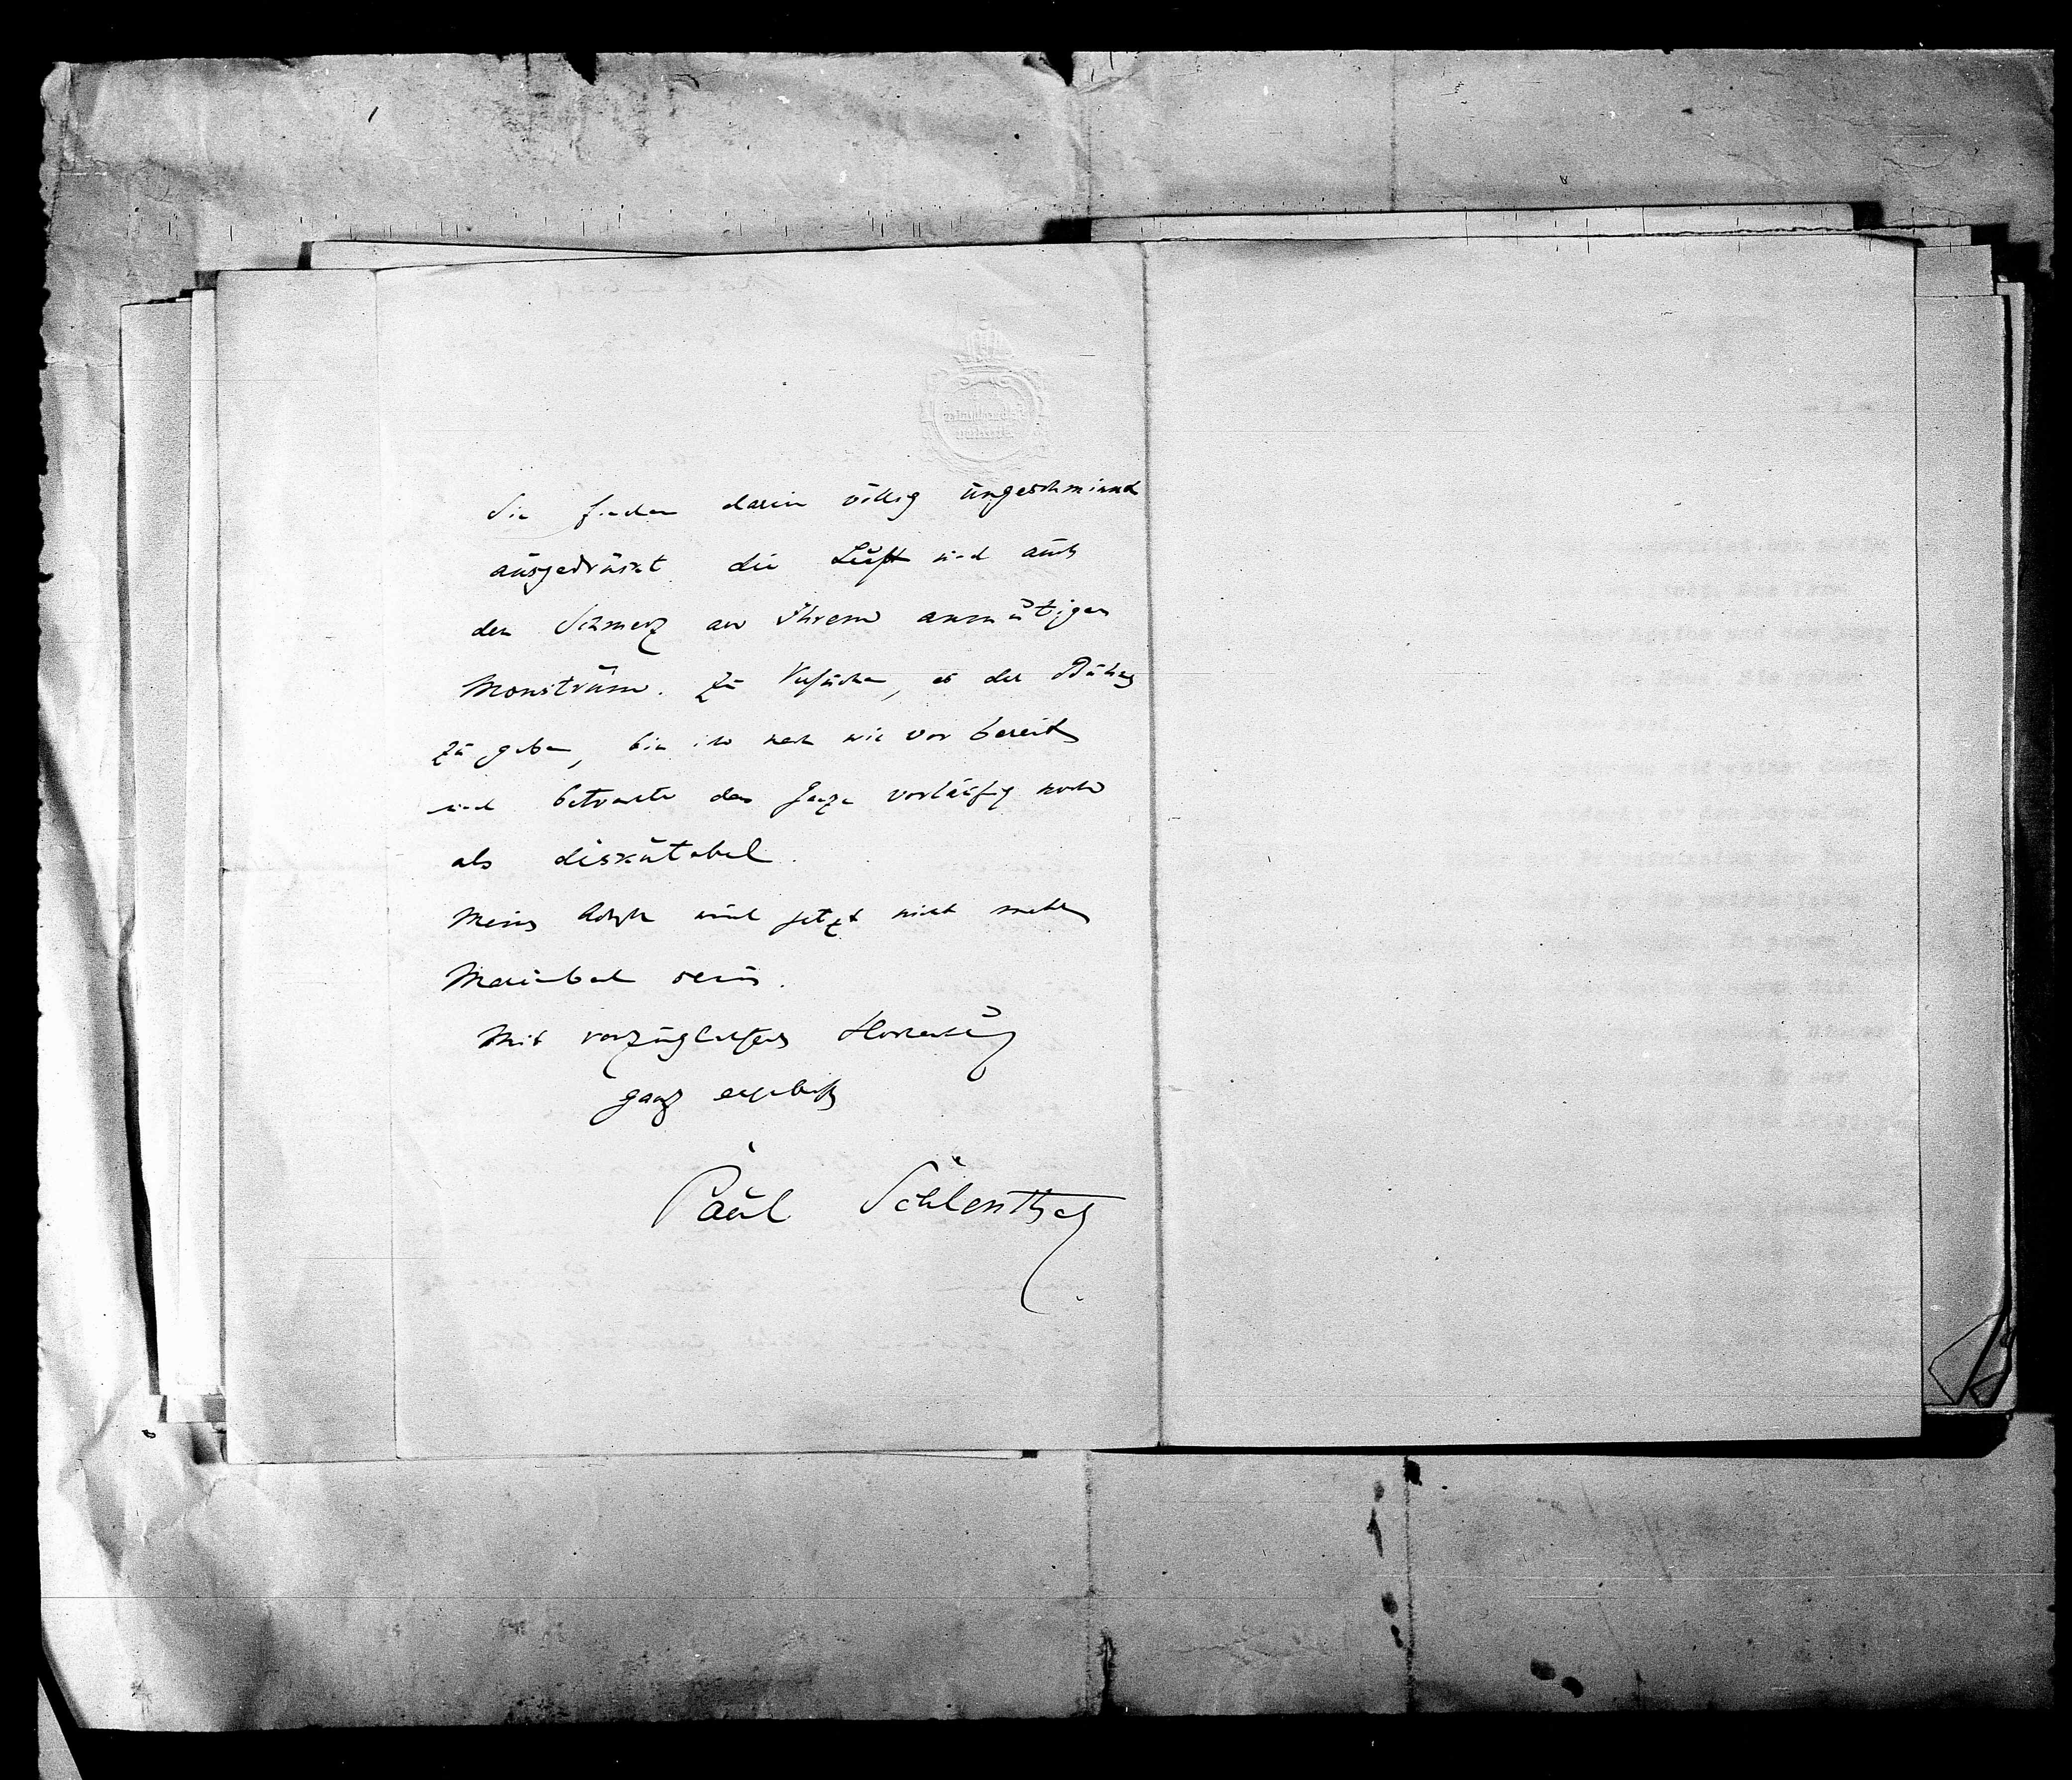 Sie finden darin völlig ungeschminkt
ausgedrückt die Lust und auch
den Schmerz an Ihrem anmutigen
Monstrum. Zu versuchen, es der Bühne
zu geben, bin ich nach wie vor bereit
und betrachte das Ganze vorläufig noch
als diskutabel.
Meine Adresse wird jetzt nicht mehr
Marienbad sein.
Mit vorzüglicher Hochachtung
ganz ergebenst
Paul Schlenther